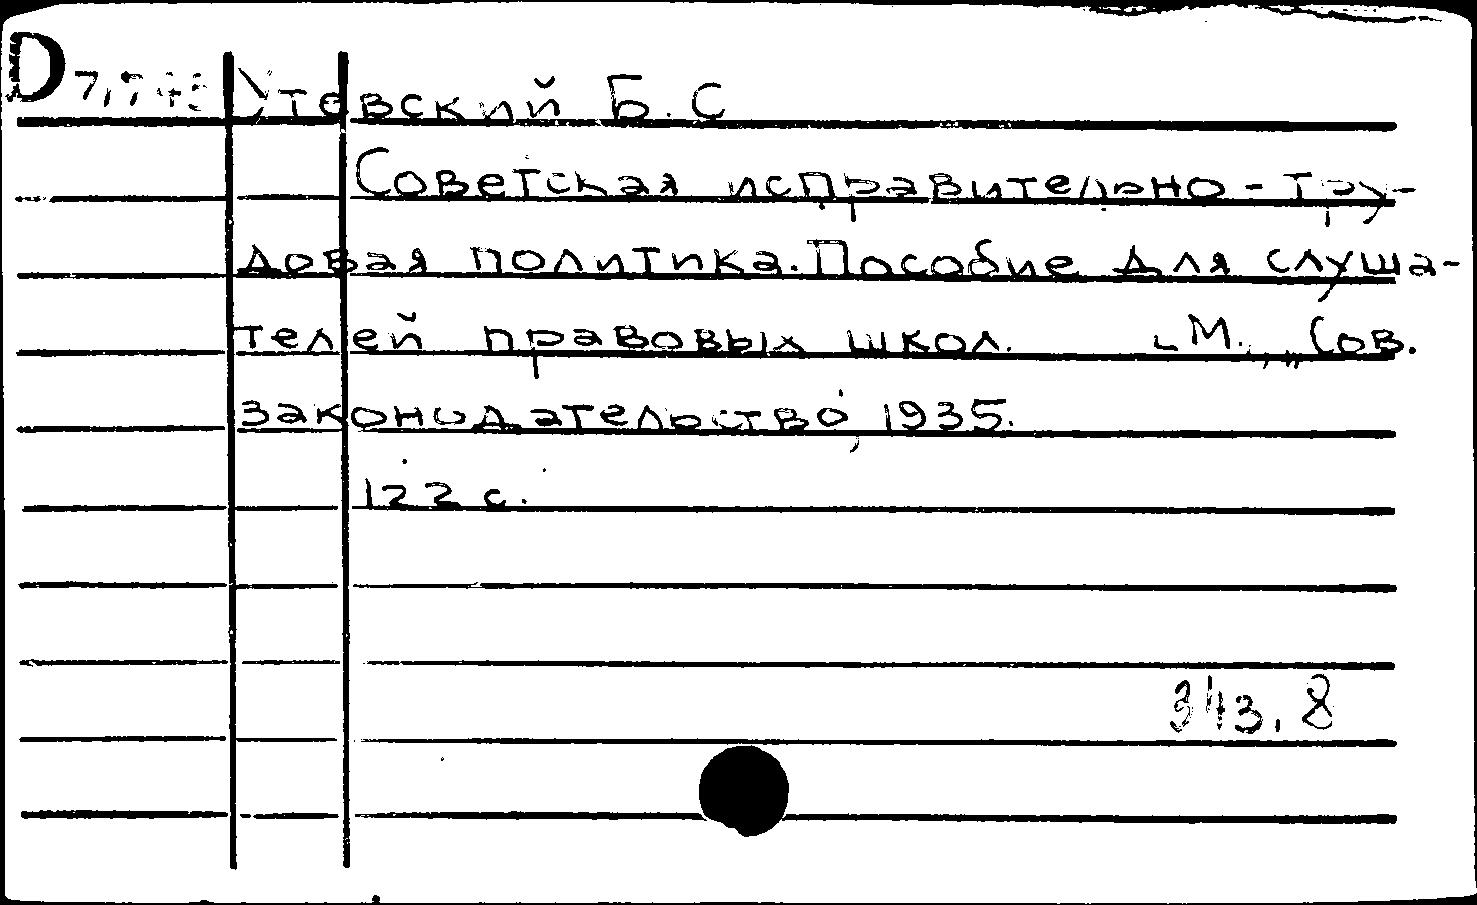 D 7,745 Утевский Б. С
Советская исправительно-тру-
довая политика. Пособие для слуша-
телей правовых школ. М., Сов.
законодательство, 1935.
122 с.
343.8